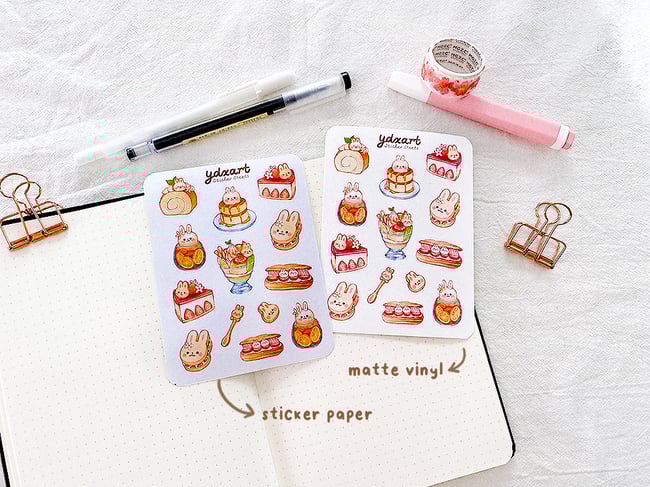 ydxart
Sticker Sheets
ydxart
Sticker Sheets
matte vinyl
sticker paper